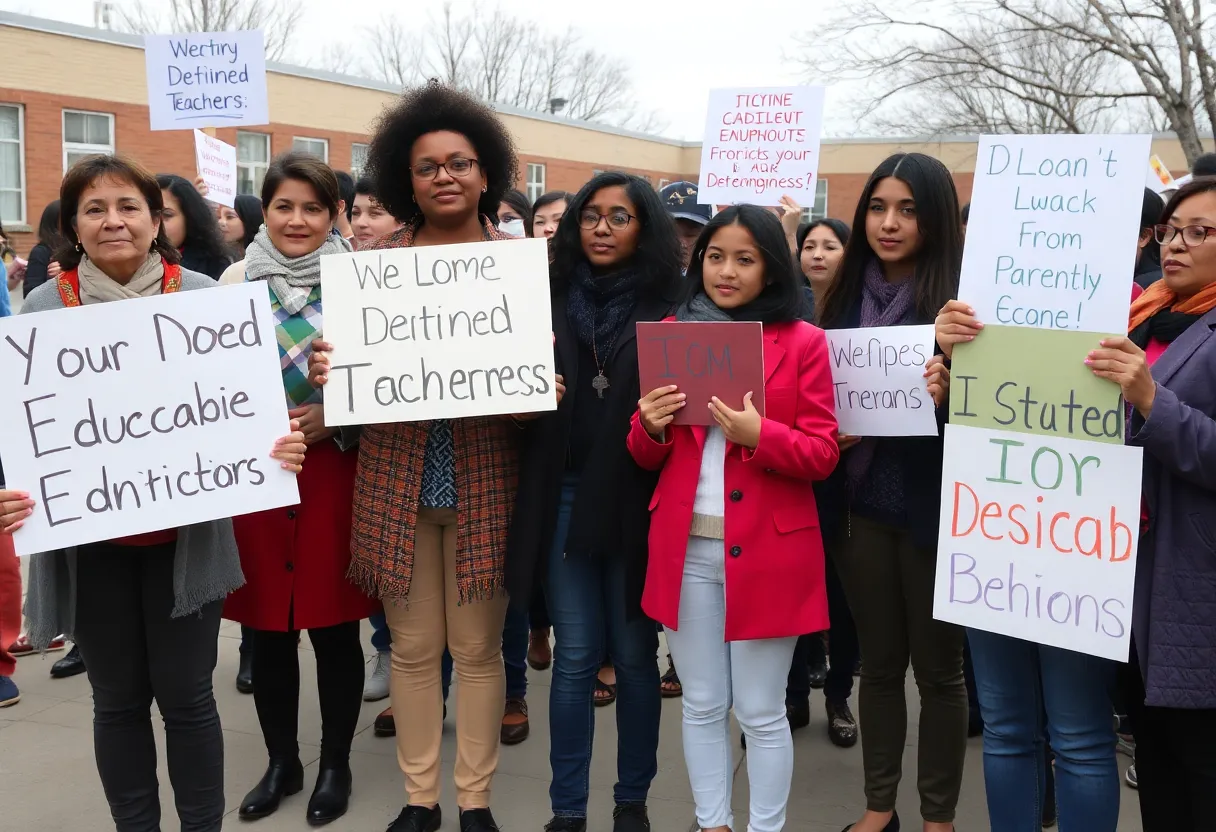 Wectiry
Detfined
Teachers:
JTCYINE
CADILEUT
ENUPHOUTE
Froricts your
& AUR
Deterngingness?
D Loan't
Lwack
From
Parently
Ecane!
Your Doed
Educcabie
Ednticitors
We Lome
Dertined
Tachernress
IOM
Wefipes
Tnerans
I Stuted
IOr
Desicab
Behions